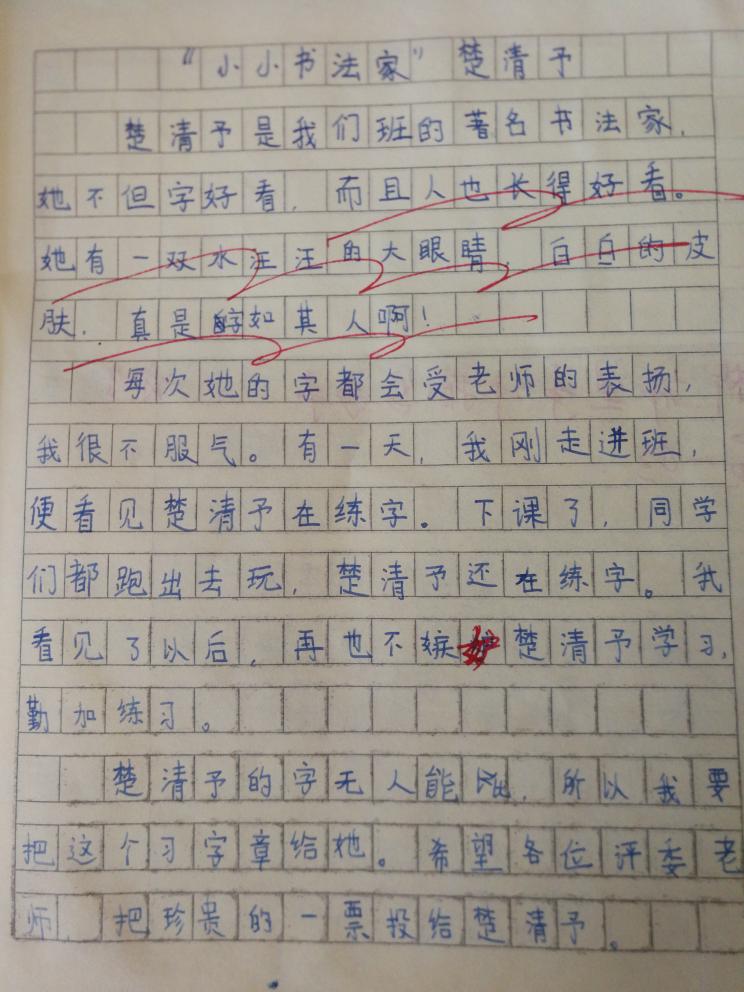 “小小书法家”楚清予
楚清予是我们班的著名书法家，
她不但字好看，而且人也长得好看。
她有一双水汪汪的大眼睛，白白的皮
肤，真是字如其人啊！
每次她的字都会受老师的表扬，
我很不服气。有一天，我刚走进班，
便看见楚清予在练字。下课了，同学
们都跑出去玩，楚清予还在练字。我
看见了以后，再也不嫉妒楚清予学习，
勤加练习。
楚清予的字无人能比，所以我要
把这个习字章给她。希望各位评委老
师，把珍贵的一票投给楚清予。